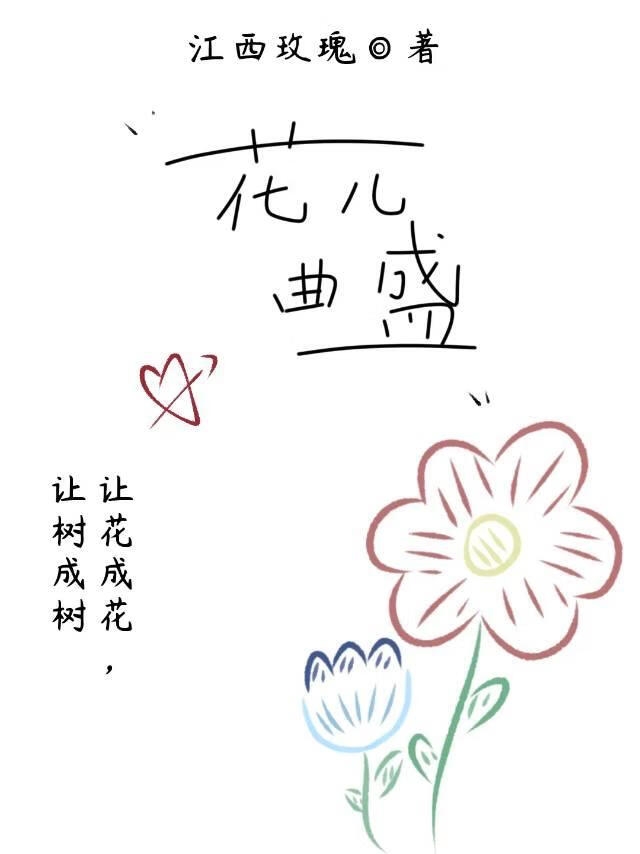 江西玫瑰◎著
花儿
曲盛
让花成花，
让树成树